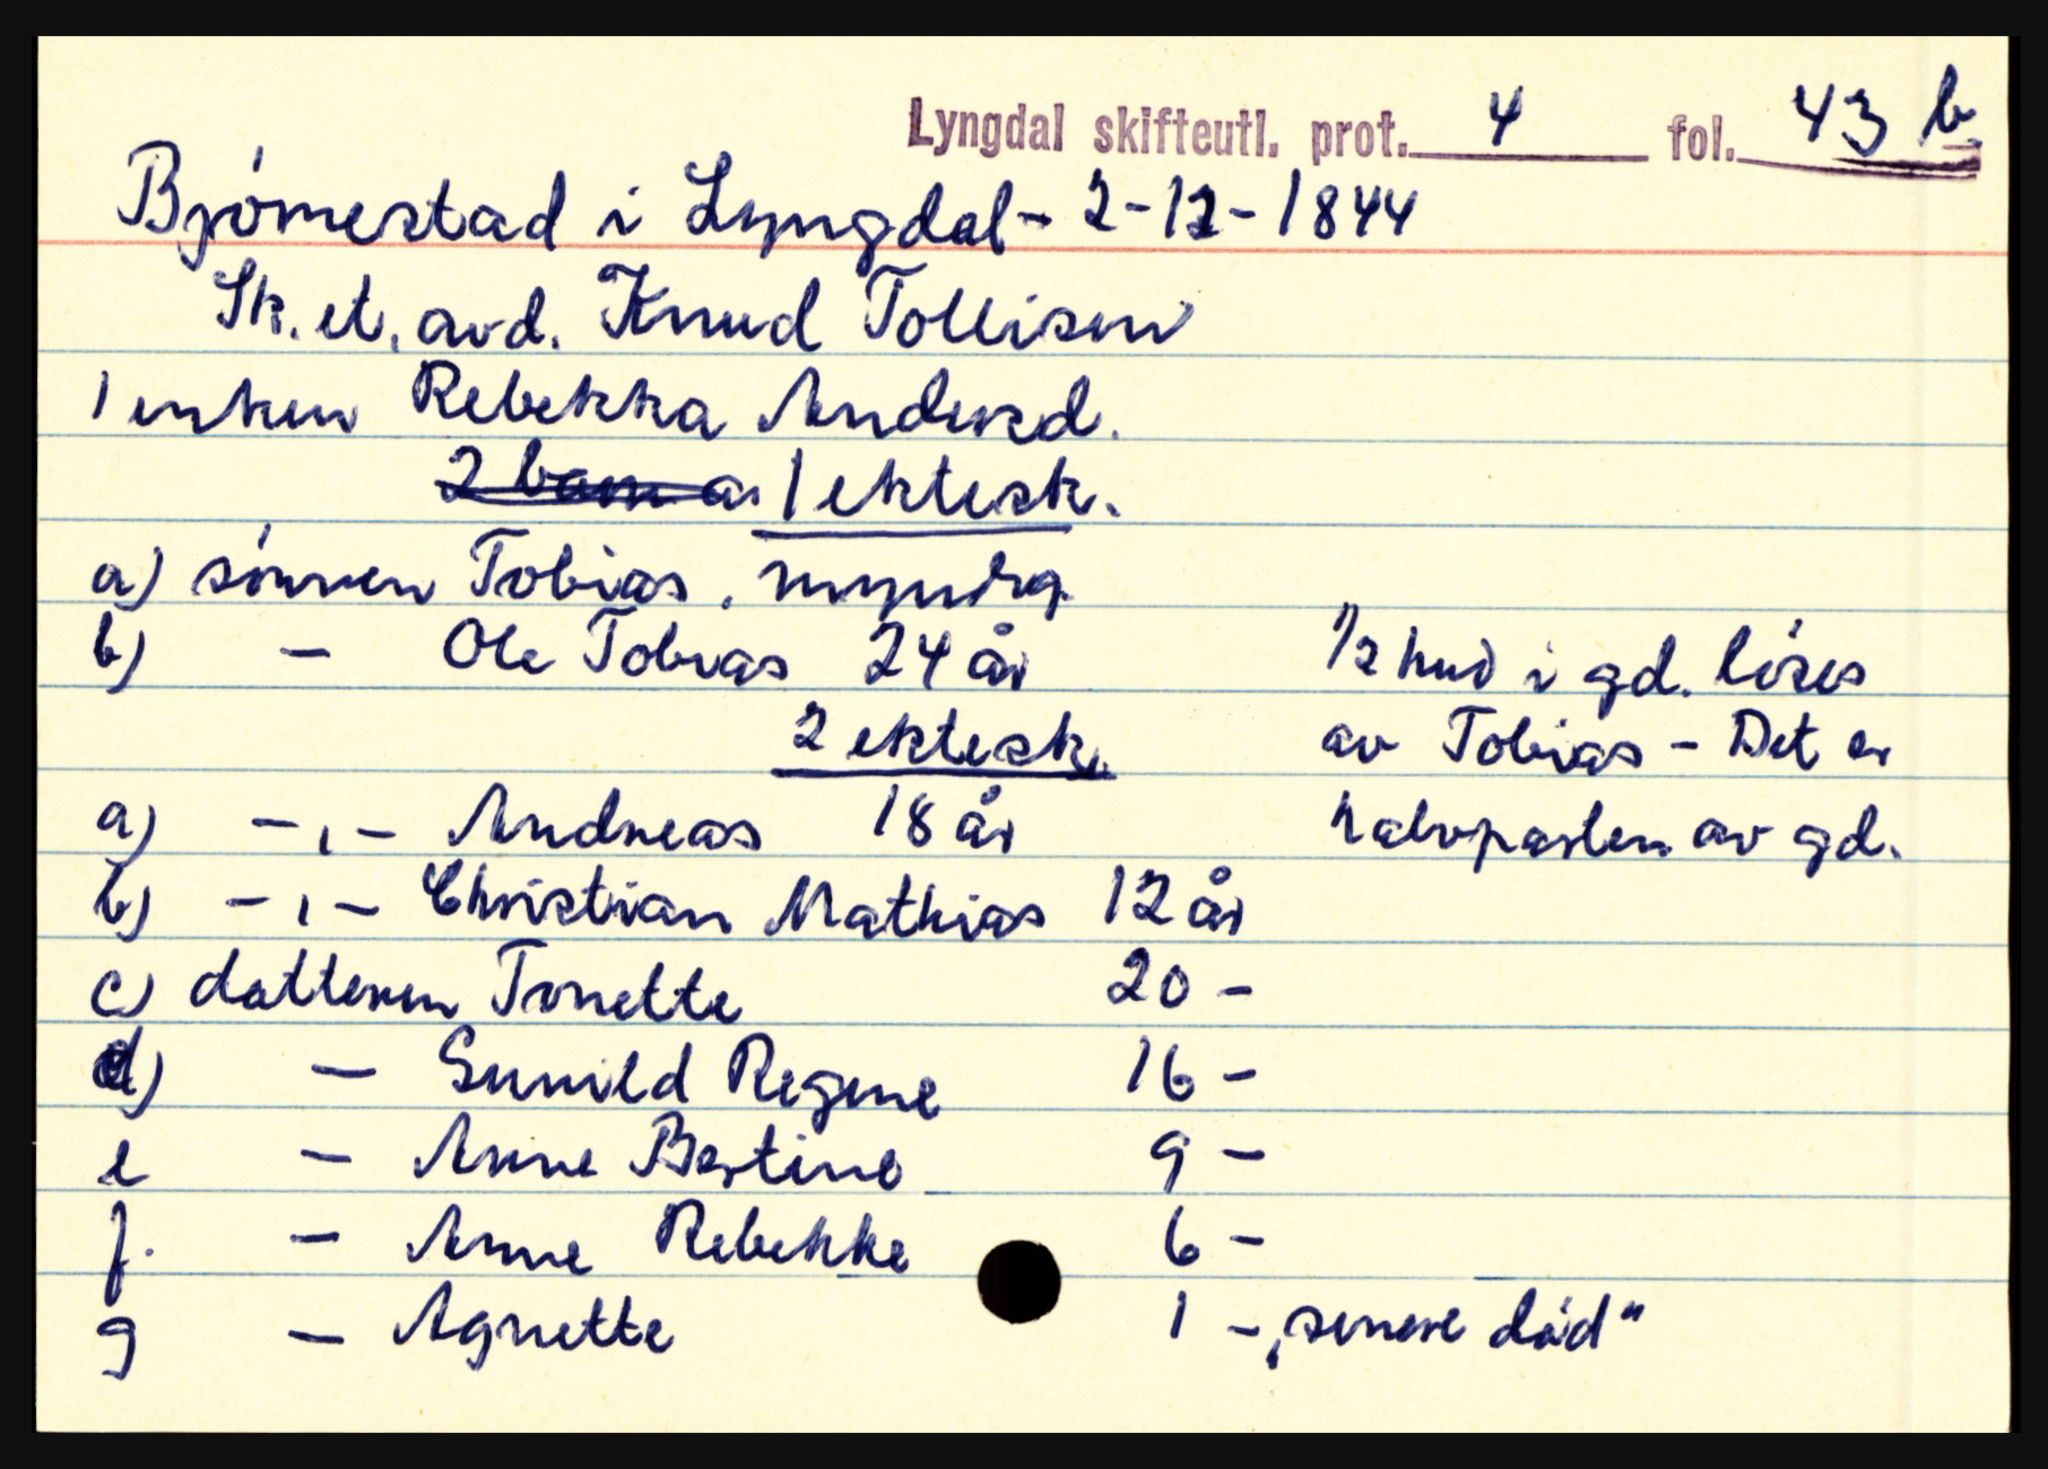 Lyngdal skifteutl. prot. 4 fol. 43 b.
Bjørnestad i Lyngdal - 2-12-1844
Sk. et. avd. Knud Tollisen
1 enken Rebekka Andersd.
2 barn a. 1 ektesk.
a) sønnen Tobias, myndig
b) - Ole Tobias 24 år
1/2 hud i gd. løses
2 ektesk.
av Tobias - Det er
a) -,- Andreas 18 år
halvparten av gd.
b) -,- Christian Mathias 12 år
c) datteren Tonette 20 -
d) - Gunild Regine 16 -
e - Anne Bertine 9 -
f. - Anne Rebekke 6 -
g - Agnette 1 - „senere død"